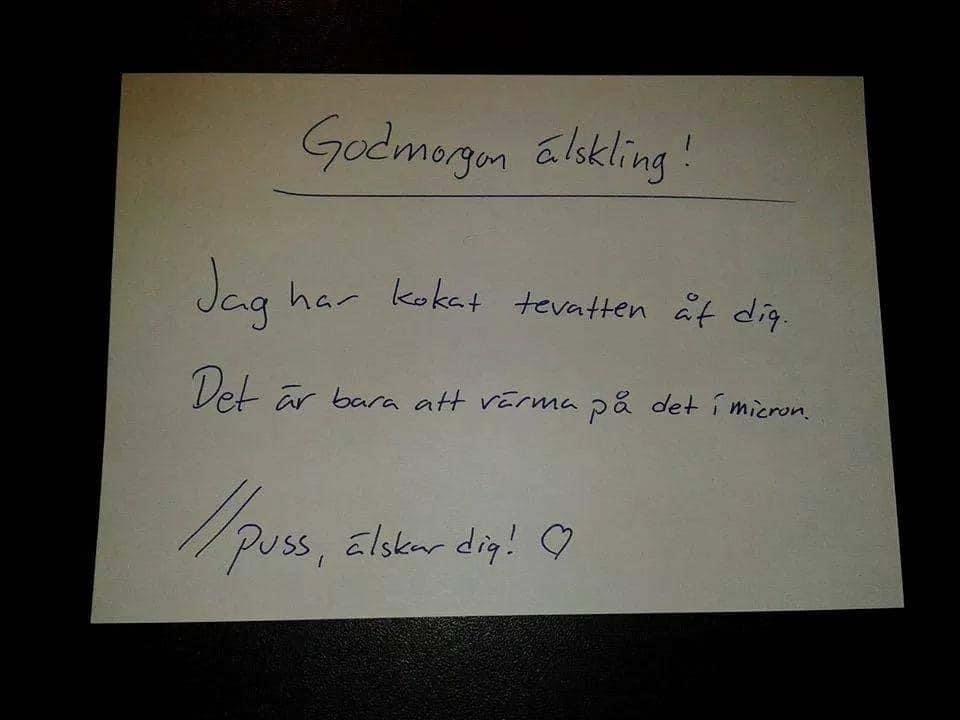 Godmorgon älskling!
Jag har kokat tevatten åt dig.
Det är bara att värma på det i micron.
//puss, älskar dig! ♡